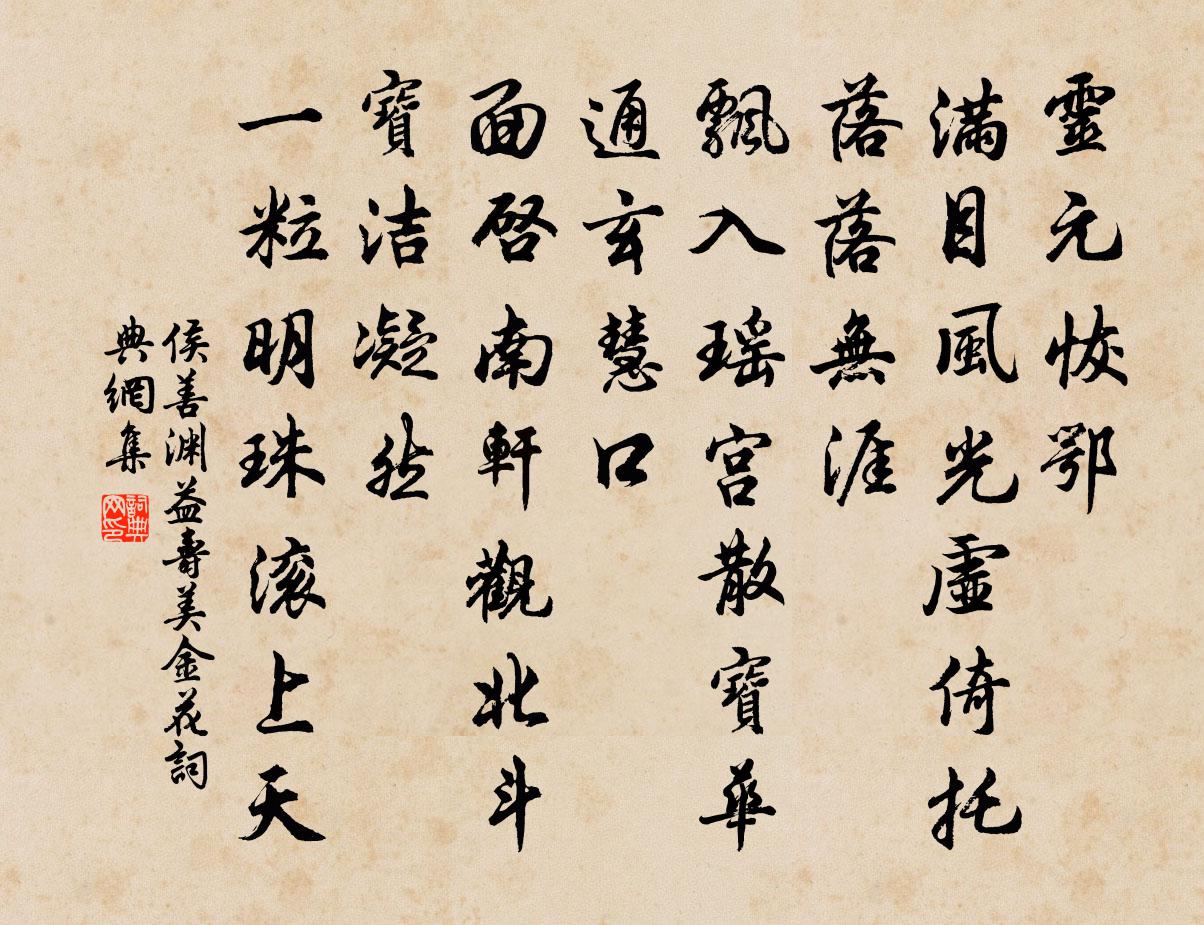 靈元恢鄂
滿目風光虛倚托
落落無涯
飄入瑶宫散寶華
通玄慧口
面啓南軒觀北斗
寶洁凝然
一粒明珠滚上天
侯善渊益壽美金花詞
典網集
詞典
网印